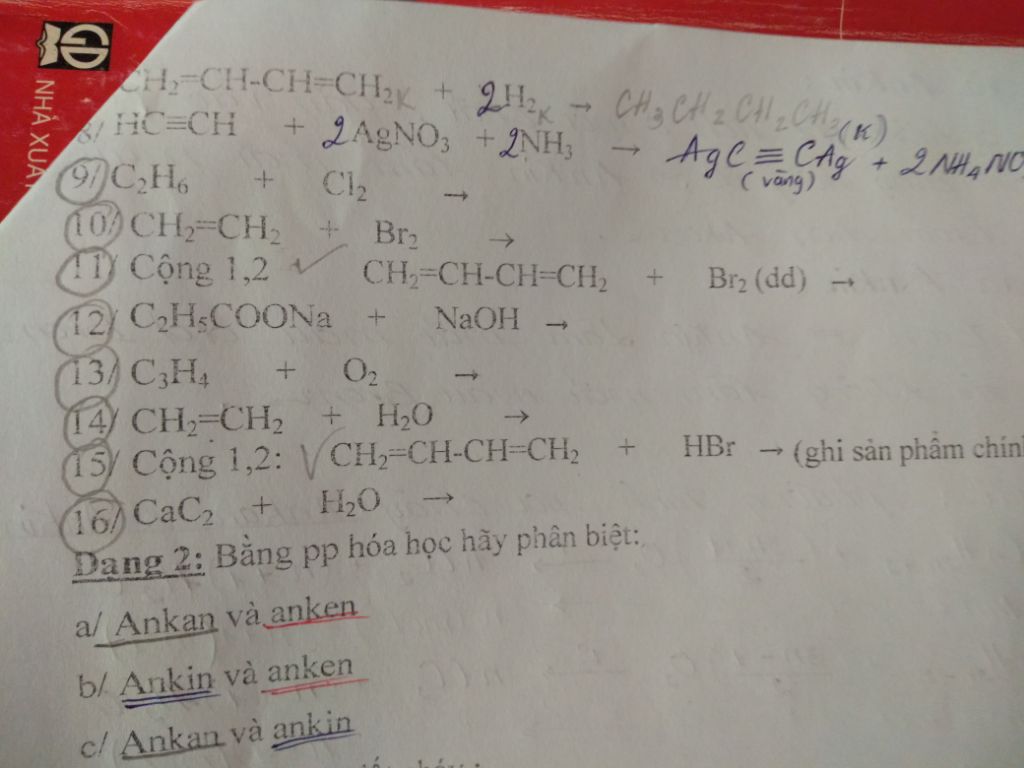 NHÀ XUẤ
CH₂=CH-CH=CH₂ K + 2H₂ K → CH₃CH₂CH₂CH₃ (K)
8/ HC≡CH + 2AgNO₃ + 2NH₃ → AgC≡CAg + 2NH₄NO₃
(vàng)
9/ C₂H₆ + Cl₂ →
10/ CH₂=CH₂ + Br₂ →
11/ Cộng 1,2 ✓ CH₂=CH-CH=CH₂ + Br₂ (dd) →
12/ C₂H₅COONa + NaOH →
13/ C₃H₄ + O₂ →
14/ CH₂=CH₂ + H₂O →
15/ Cộng 1,2: ✓ CH₂=CH-CH=CH₂ + HBr → (ghi sản phẩm chính
16/ CaC₂ + H₂O →
Dạng 2: Bằng pp hóa học hãy phân biệt:
a/ Ankan và anken
b/ Ankin và anken
c/ Ankan và ankin